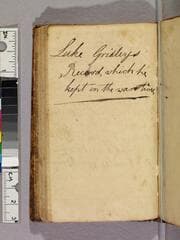 Luke Gridleys
Record, which he
kept in the war time